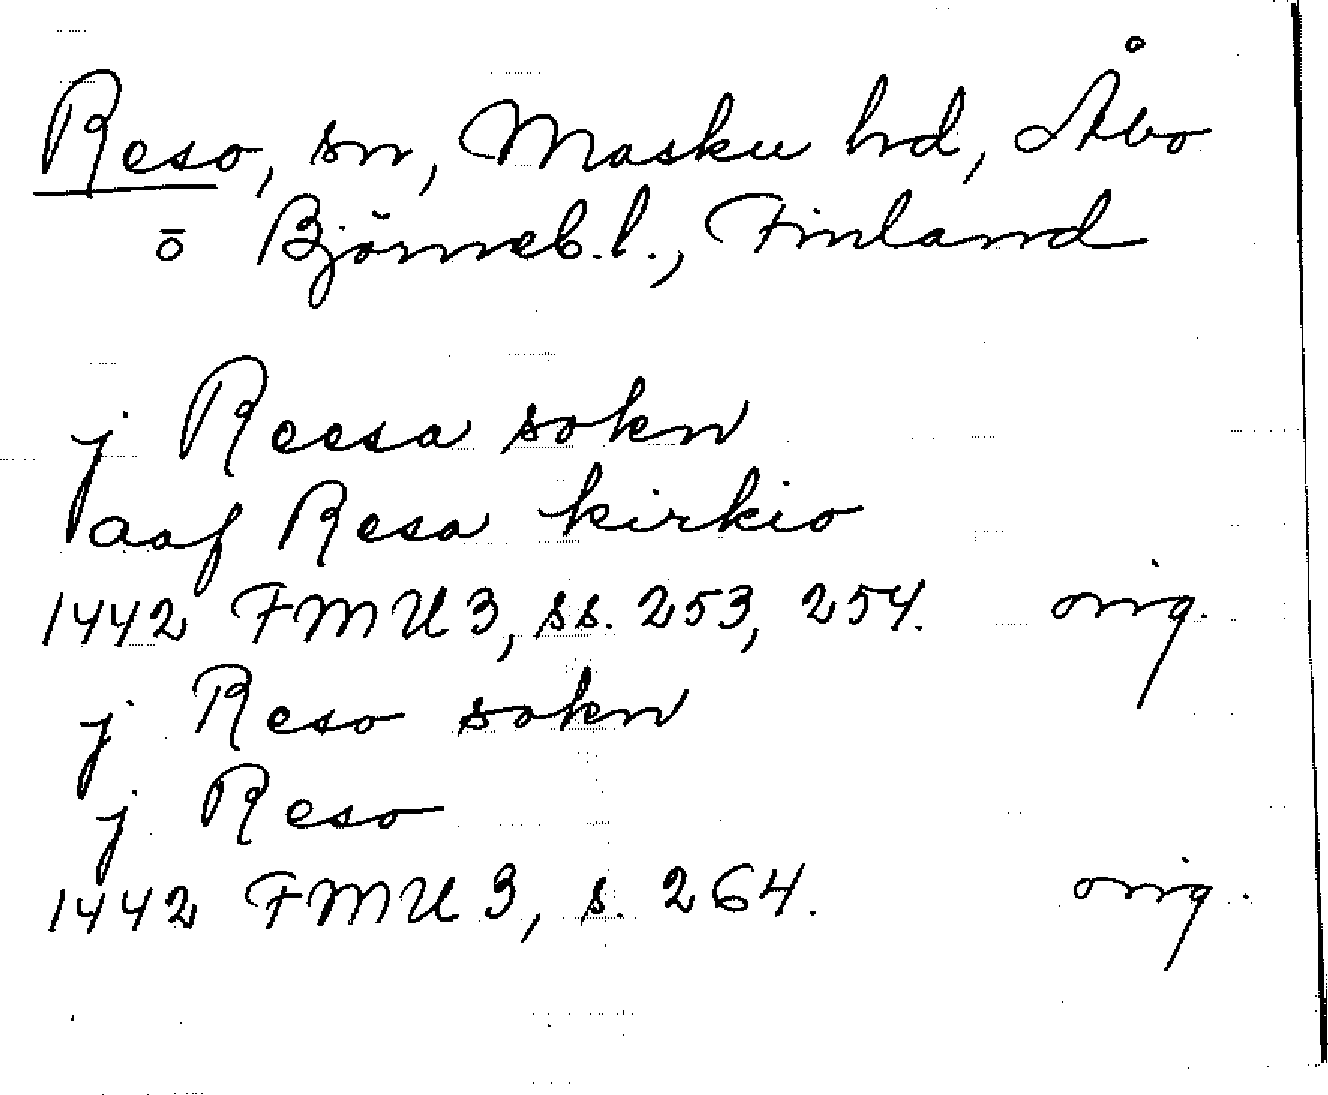 Reso, sn, Masku hd, Åbo
o Björneb.l., Finland
j Reesa sokn
aaf Resa kirkio
1442 FMU 3, ss. 253, 254. orig.
j Reso sokn
j Reso
1442 FMU 3, s. 264. orig.